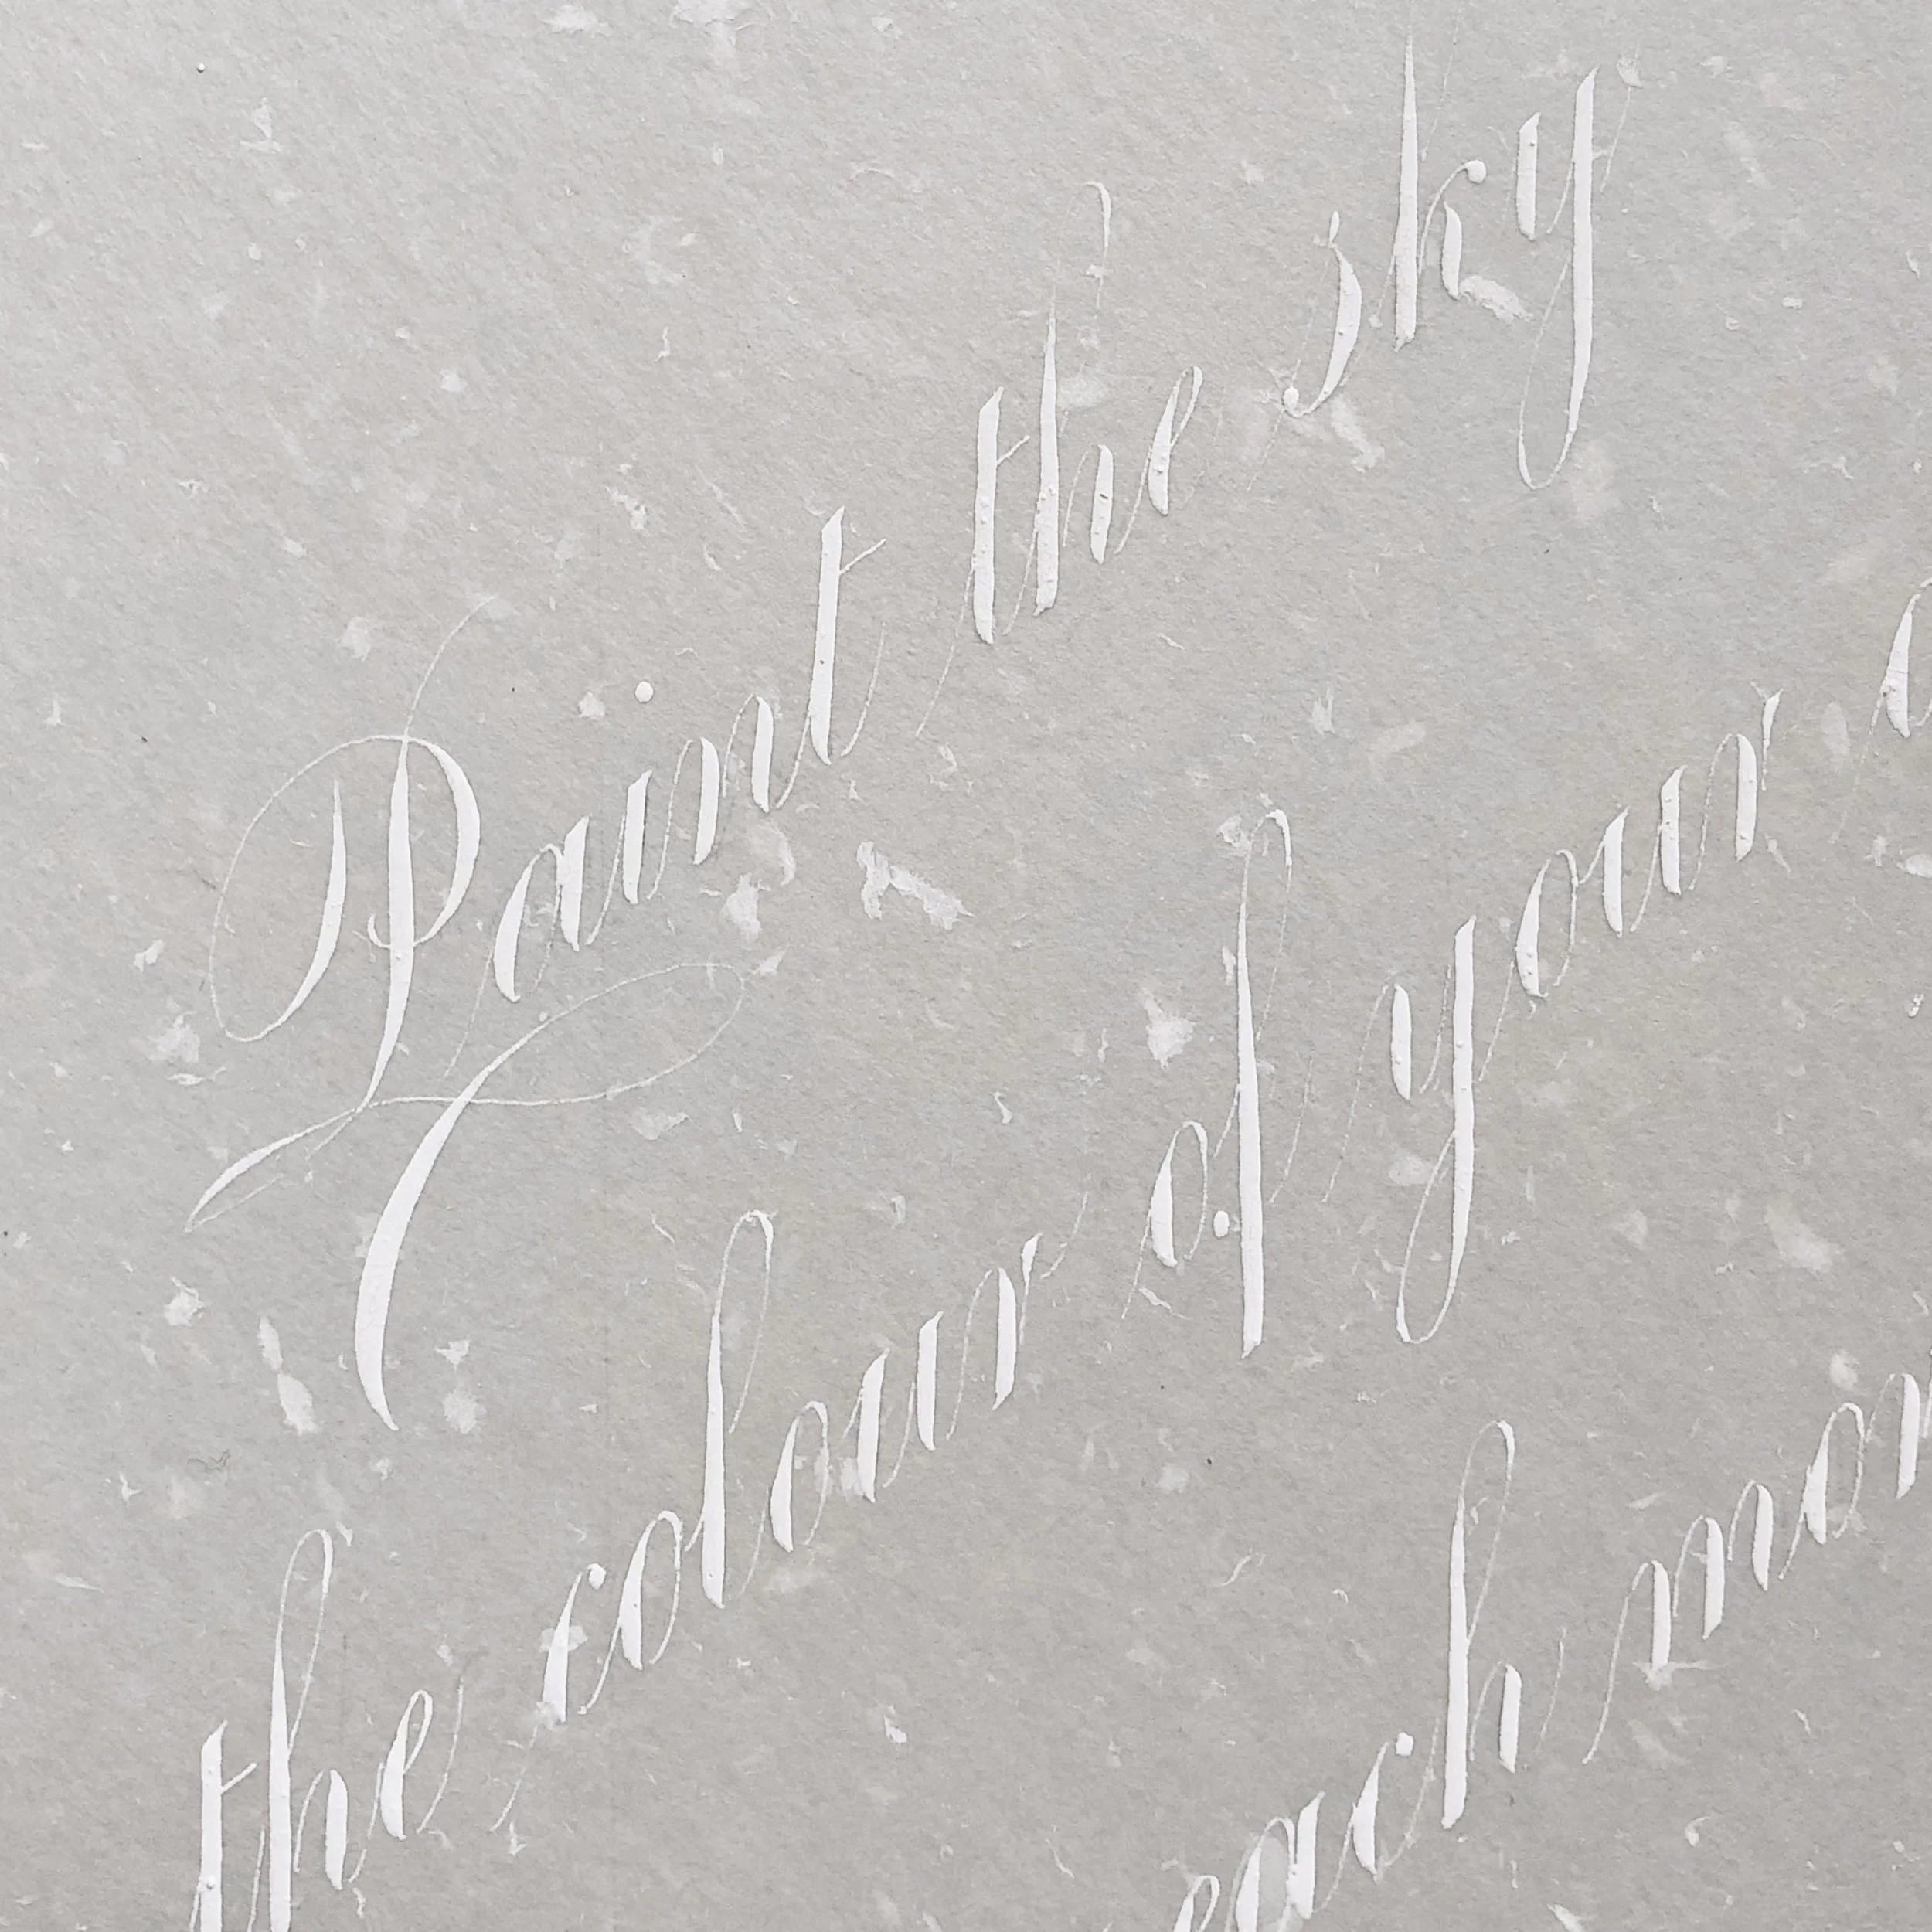 Paint the sky
the colour of your
each